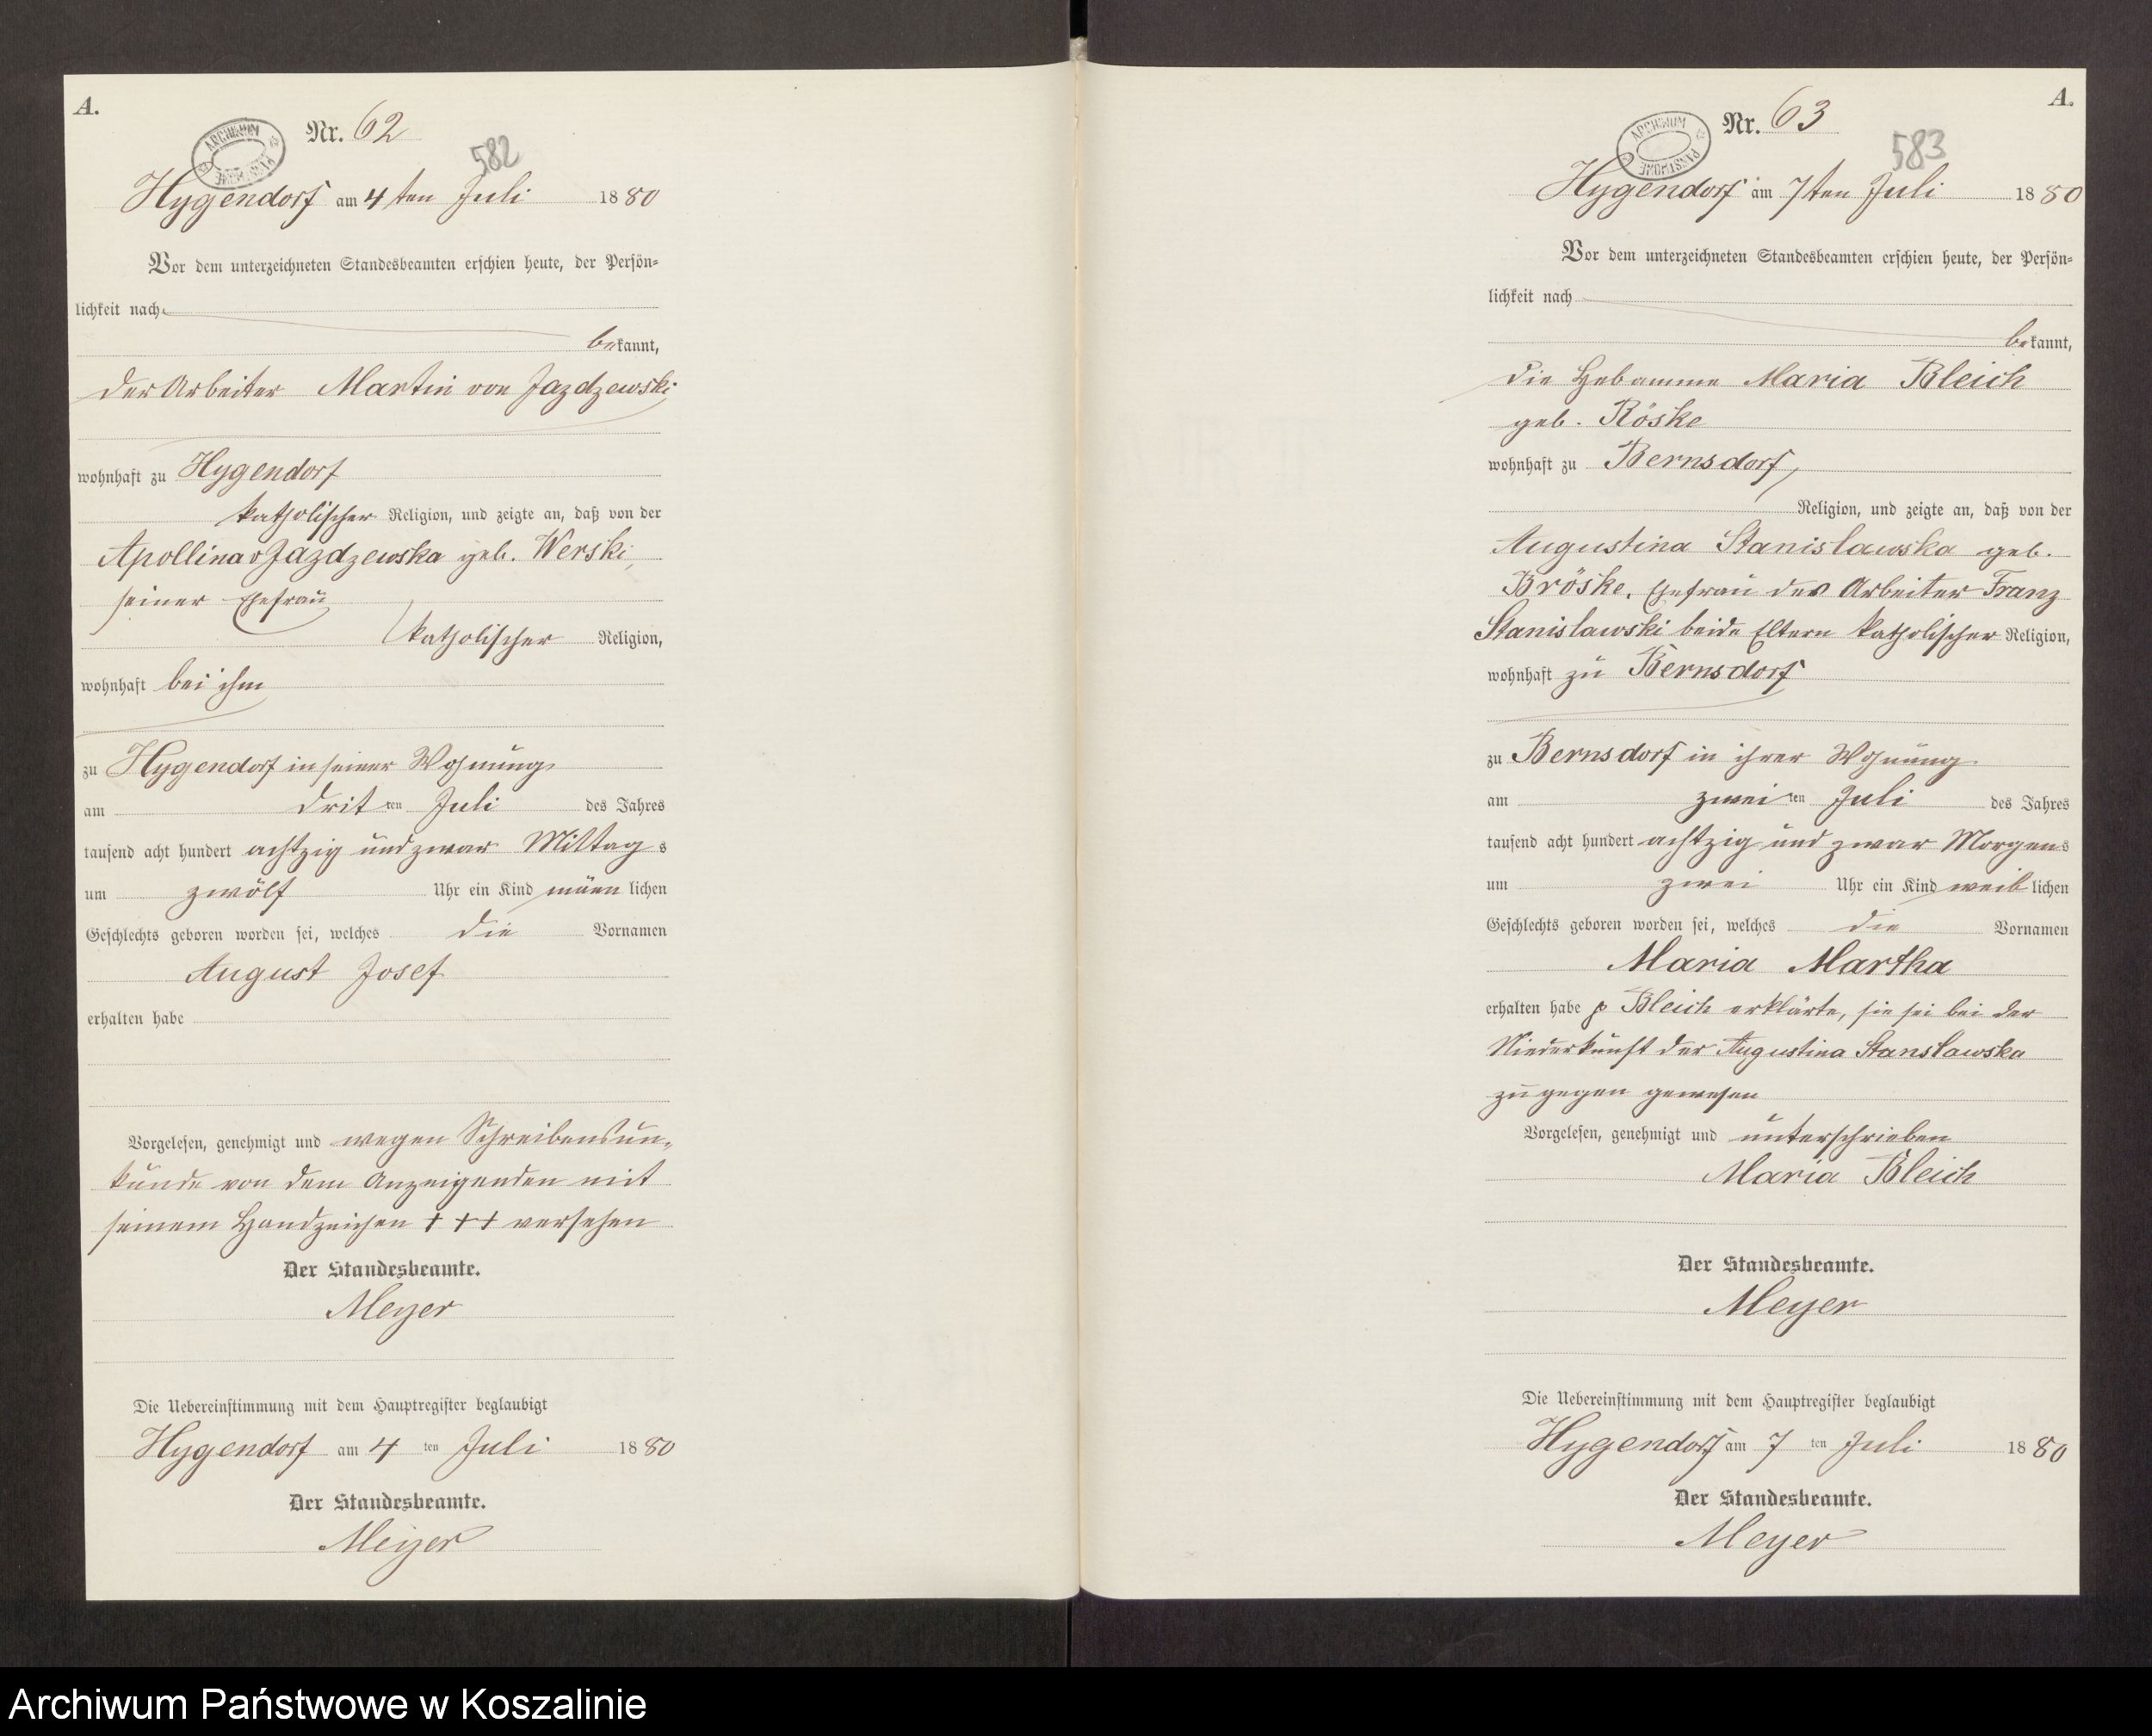 A.
ARCHIWUM PAŃSTWOWE
Nr. 62
582
Hygendorf am 4ten Juli 1880
Vor dem unterzeichneten Standesbeamten erschien heute, der Persön-
lichkeit nach
bekannt,
der Arbeiter Martin von Jazdzewski
wohnhaft zu Hygendorf
katholischer Religion, und zeigte an, daß von der
Apollinar Jazdzewska geb. Werski,
seiner Ehefrau
katholischer Religion,
wohnhaft bei ihm
zu Hygendorf in seiner Wohnung
am dritten Juli des Jahres
tausend acht hundert achtzig und zwar Mittags
um zwölf Uhr ein Kind männlichen
Geschlechts geboren worden sei, welches die Vornamen
August Josef
erhalten habe
Vorgelesen, genehmigt und wegen Schreibensun-
kunde von dem Anzeigenden mit
seinem Handzeichen +++ versehen
Der Standesbeamte.
Meyer
Die Uebereinstimmung mit dem Hauptregister beglaubigt
Hygendorf am 4ten Juli 1880
Der Standesbeamte.
Meyer
A.
ARCHIWUM PAŃSTWOWE
Nr. 63
583
Hygendorf am 7ten Juli 1880
Vor dem unterzeichneten Standesbeamten erschien heute, der Persön-
lichkeit nach
bekannt,
die Hebamme Maria Bleich
geb. Röske
wohnhaft zu Bernsdorf,
Religion, und zeigte an, daß von der
Augustina Stanislawska geb.
Bröske, Ehefrau des Arbeiter Franz
Stanislawski beide Eltern katholischer Religion,
wohnhaft zu Bernsdorf
zu Bernsdorf in ihrer Wohnung
am zweiten Juli des Jahres
tausend acht hundert achtzig und zwar Morgens
um zwei Uhr ein Kind weiblichen
Geschlechts geboren worden sei, welches die Vornamen
Maria Martha
erhalten habe p Bleich erklärte, sie sei bei der
Niederkunft der Augustina Stanslawska
zugegen gewesen
Vorgelesen, genehmigt und unterschrieben
Maria Bleich
Der Standesbeamte.
Meyer
Die Uebereinstimmung mit dem Hauptregister beglaubigt
Hygendorf am 7ten Juli 1880
Der Standesbeamte.
Meyer
Archiwum Państwowe w Koszalinie